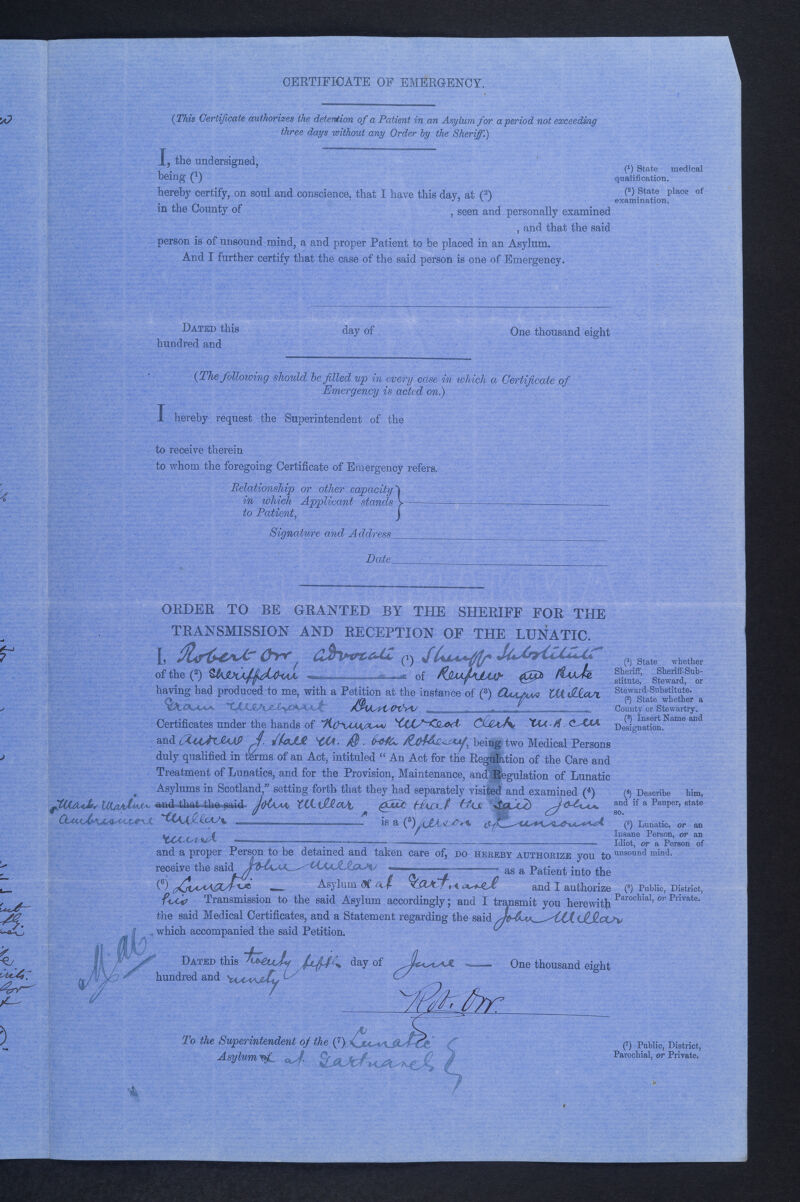 CERTIFICATE OF EMERGENCY.
(This Certificate authorizes the detention of a Patient in an Asylum for a period not exceeding
three days without any Order by the Sheriff.)
I, the undersigned,
being (¹)
(¹) State medical
qualification.
hereby certify, on soul and conscience, that I have this day, at (²)
(²) State place of
examination.
in the County of , seen and personally examined
, and that the said
person is of unsound mind, a and proper Patient to be placed in an Asylum.
And I further certify that the case of the said person is one of Emergency.
DATED this day of One thousand eight
hundred and
(The following should be filled up in every case in which a Certificate of
Emergency is acted on.)
I hereby request the Superintendent of the
to receive therein
to whom the foregoing Certificate of Emergency refers.
Relationship or other capacity
in which Applicant stands
to Patient,
Signature and Address
Date
ORDER TO BE GRANTED BY THE SHERIFF FOR THE
TRANSMISSION AND RECEPTION OF THE LUNATIC.
I, Robert Orr, Advocate (¹) Sheriff Substitute
of the (²) Sheriffdom of Renfrew and Bute
having had produced to me, with a Petition at the instance of (³) Angus Millar
Grain Merchant Dunoon
Certificates under the hands of Norman McLeod Clerk M.B. C.M
and Andrew J. Hall M.D. both Rothesay, being two Medical Persons
duly qualified in terms of an Act, intituled “ An Act for the Regulation of the Care and
Treatment of Lunatics, and for the Provision, Maintenance, and Regulation of Lunatic
Asylums in Scotland,” setting forth that they had separately visited and examined (⁴)
Master Mariner and that the said John Millar, and that the said John
Millar is a (⁵) person of unsound
mind
and a proper Person to be detained and taken care of, DO HEREBY AUTHORIZE you to
receive the said John Millar as a Patient into the
(⁶) Lunatic Asylum of at Gartnavel and I authorize
his Transmission to the said Asylum accordingly; and I transmit you herewith
the said Medical Certificates, and a Statement regarding the said John Millar
which accompanied the said Petition.
DATED this twenty fifth day of June One thousand eight
hundred and ninety
Rob. Orr.
To the Superintendent of the (⁷) Lunatic
Asylum of at Gartnavel
(¹) State whether
Sheriff, Sheriff-Sub-
stitute, Steward, or
Steward-Substitute.
(²) State whether a
County or Stewartry.
(³) Insert Name and
Designation.
(⁴) Describe him,
and if a Pauper, state
so.
(⁵) Lunatic, or an
Insane Person, or an
Idiot, or a Person of
unsound mind.
(⁶) Public, District,
Parochial, or Private.
(⁷) Public, District,
Parochial, or Private.